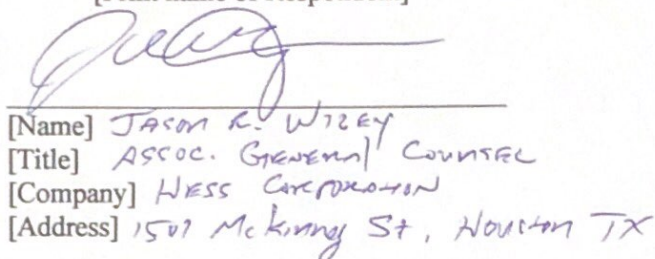 [Name] JASON R. WIZEY
[Title] ASSOC. GENERAL COUNSEL
[Company] HESS CORPORATION
[Address] 1501 McKinney St, Houston TX